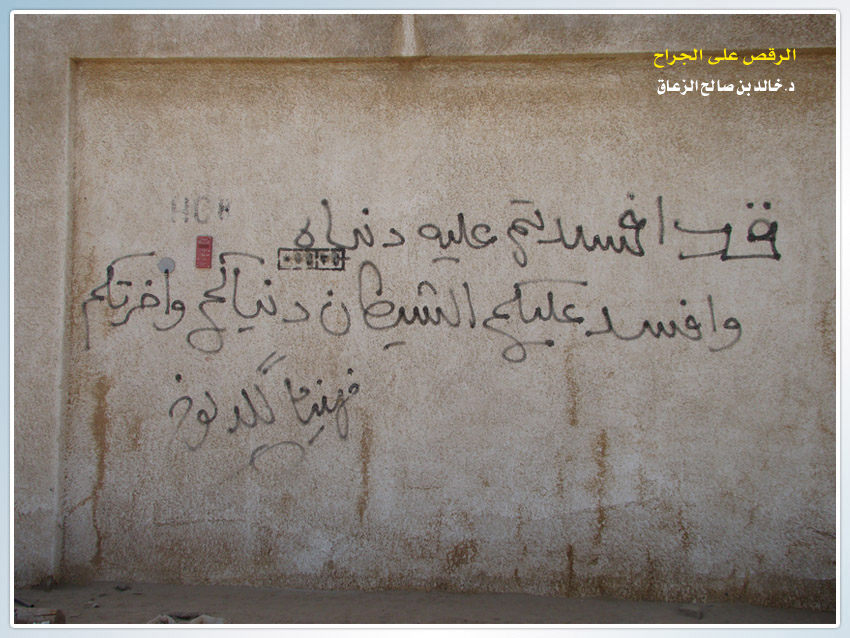 الرقص على الجراح
د. خالد بن صالح الزعاق
قد افسدتم عليه دنياه
HCR
وافسد عليكم الشيطان دنياكم وأخرتكم
فهنيئا